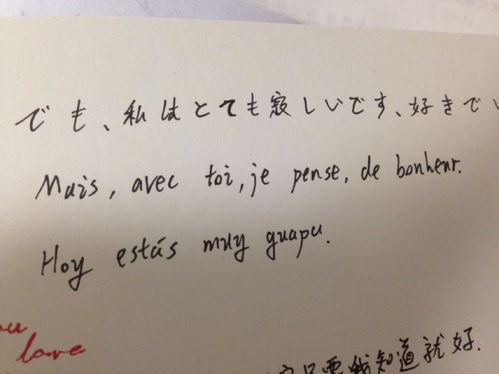 でも、私はとても寂しいです、好きで
Mais, avec toi, je pense, de bonheur.
Hoy estás muy guapa.
love
只要我知道就好.